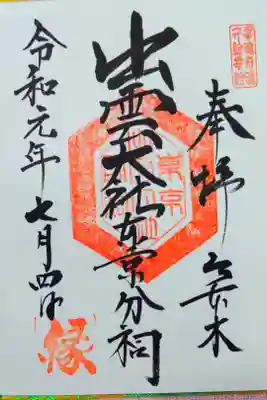 奉拝 六本木
出雲大社東京分祠
令和元年七月四日
縁